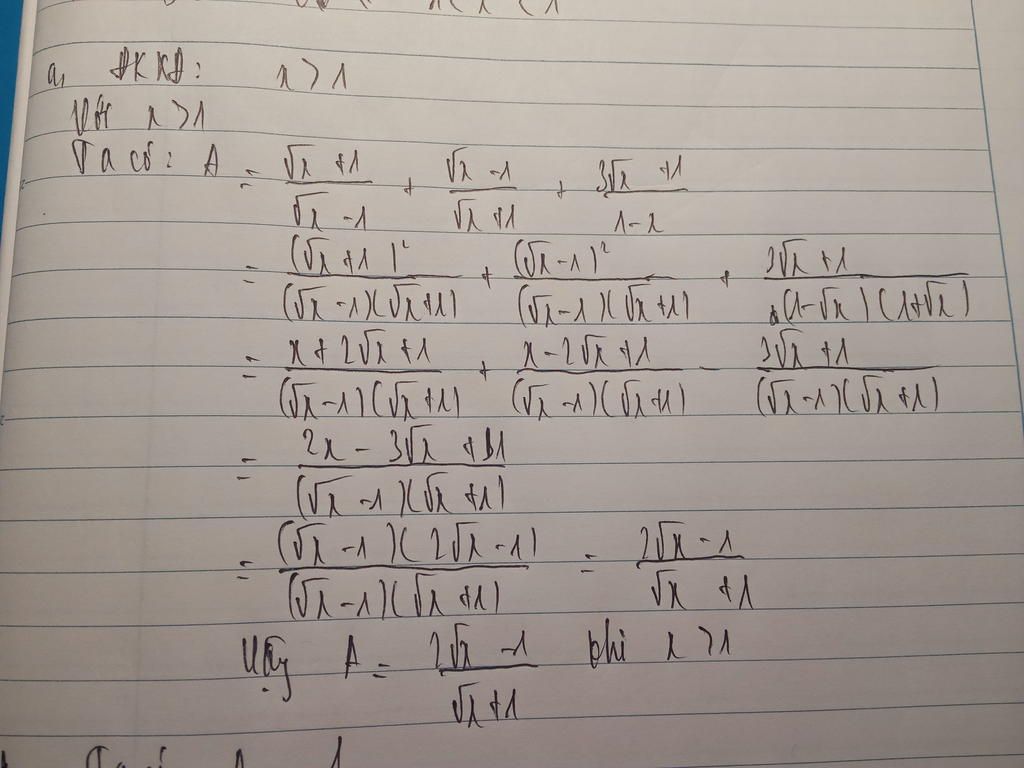 a, ĐKXĐ: x > 1
Với x > 1
Ta có: A = (√x + 1)/(√x - 1) + (√x - 1)/(√x + 1) + (3√x + 1)/(1 - x)
= (√x + 1)²/((√x - 1)(√x + 1)) + (√x - 1)²/((√x - 1)(√x + 1)) + (3√x + 1)/((1 - √x)(1 + √x))
= (x + 2√x + 1)/((√x - 1)(√x + 1)) + (x - 2√x + 1)/((√x - 1)(√x + 1)) - (3√x + 1)/((√x - 1)(√x + 1))
= (2x - 3√x + 1)/((√x - 1)(√x + 1))
= ((√x - 1)(2√x - 1))/((√x - 1)(√x + 1)) = (2√x - 1)/(√x + 1)
Vậy A = (2√x - 1)/(√x + 1) khi x > 1